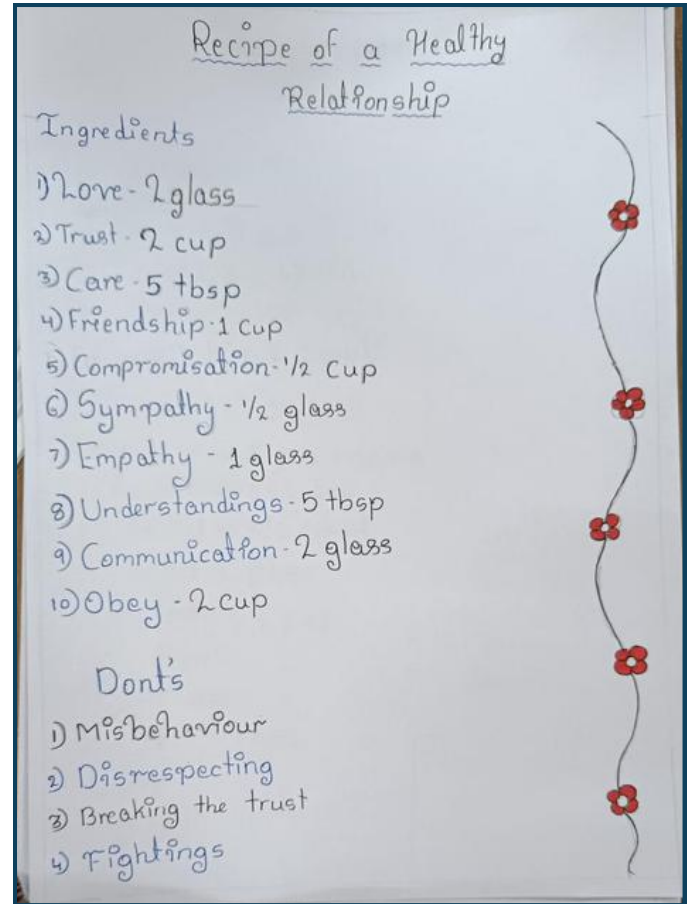 Recipe of a Healthy
Relationship
Ingredients
1) Love - 2 glass
2) Trust - 2 cup
3) Care - 5 tbsp
4) Friendship - 1 cup
5) Compromisation - 1/2 cup
6) Sympathy - 1/2 glass
7) Empathy - 1 glass
8) Understandings - 5 tbsp
9) Communication - 2 glass
10) Obey - 2 cup
Dont's
1) Misbehaviour
2) Disrespecting
3) Breaking the trust
4) Fightings